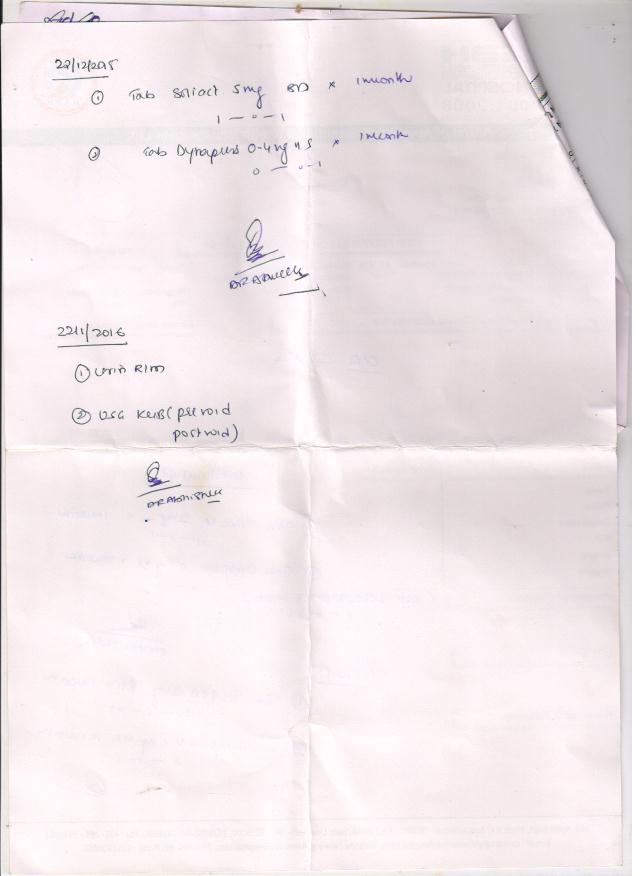 22/12/2015
① Tab Soliact 5mg BD × 1 month
1 — 0 — 1
② Tab Dynapres 0.4mg HS × 1 month
0 — 0 — 1
22/1/2016
① Urin R/M
② USG KUB (prevoid
postvoid)
DR ABHISHEK